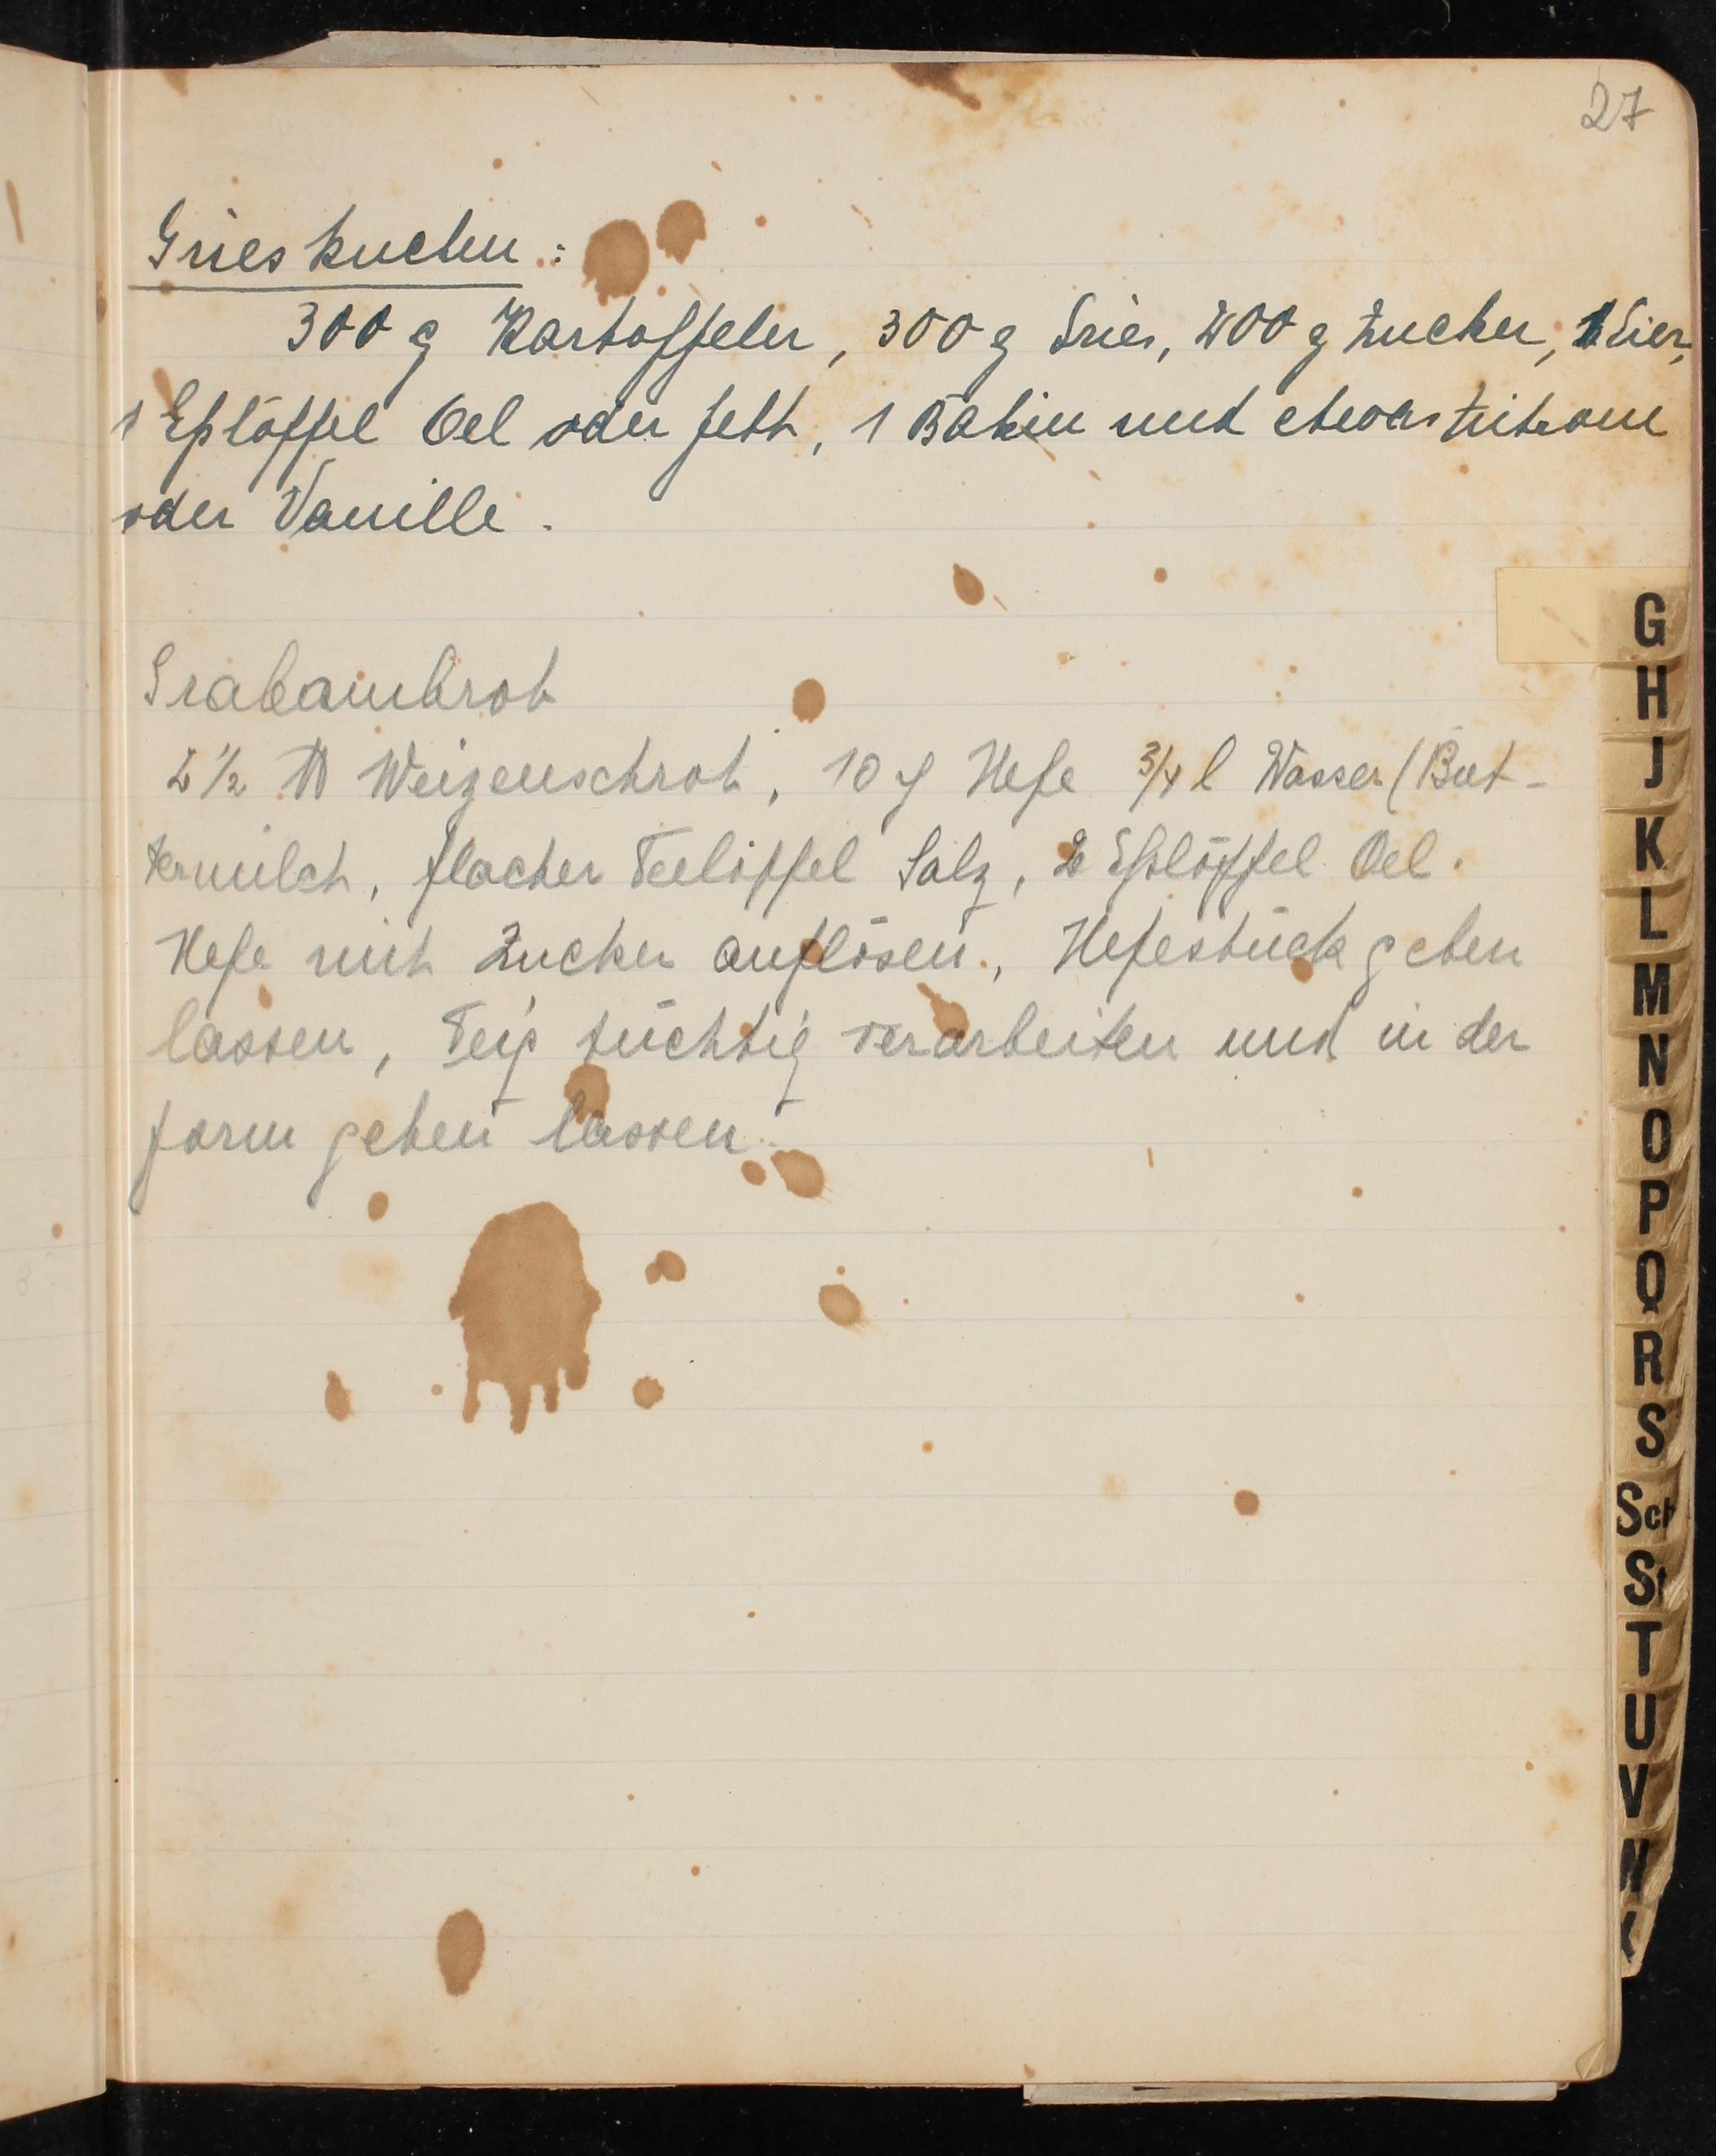 27
Grieskuchen:
300 g Kartoffeln, 300 g Gries, 200 g Zucker, 1 Eier,
1 Eßlöffel Oel oder Fett, 1 Bakin und etwas Zitrone
oder Vanille.
Grahambrot
2 1/2 ℔ Weizenschrot, 10 g Hefe 3/4 l Wasser (But-
termilch, flacher Teelöffel Salz, 2 Eßlöffel Oel.
Hefe mit Zucker auflösen, Hefestück gehen
lassen, Teig tüchtig verarbeiten und in der
Form gehen lassen.
G
H
J
K
L
M
N
O
P
Q
R
S
Sch
St
T
U
V